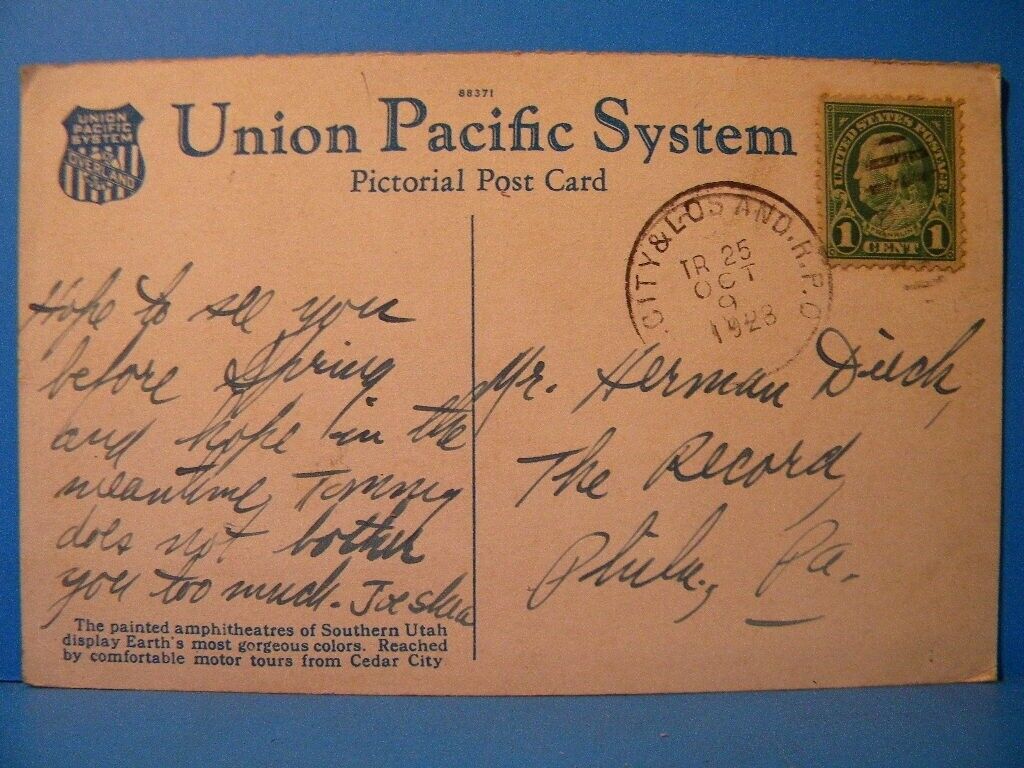 88371
UNION
PACIFIC
SYSTEM
OVERLAND
Union Pacific System
Pictorial Post Card
UNITED STATES POSTAGE
FRANKLIN
1 CENT 1
CITY & LOS AND. R.P.O.
TR 25
OCT
9
1928
Hope to see you
before Spring
and hope in the
meantime, Tommy
does not bother
you too much. Joe
Mr. Herman Dieck,
The Record,
Phila., Pa.
The painted amphitheatres of Southern Utah
display Earth's most gorgeous colors. Reached
by comfortable motor tours from Cedar City